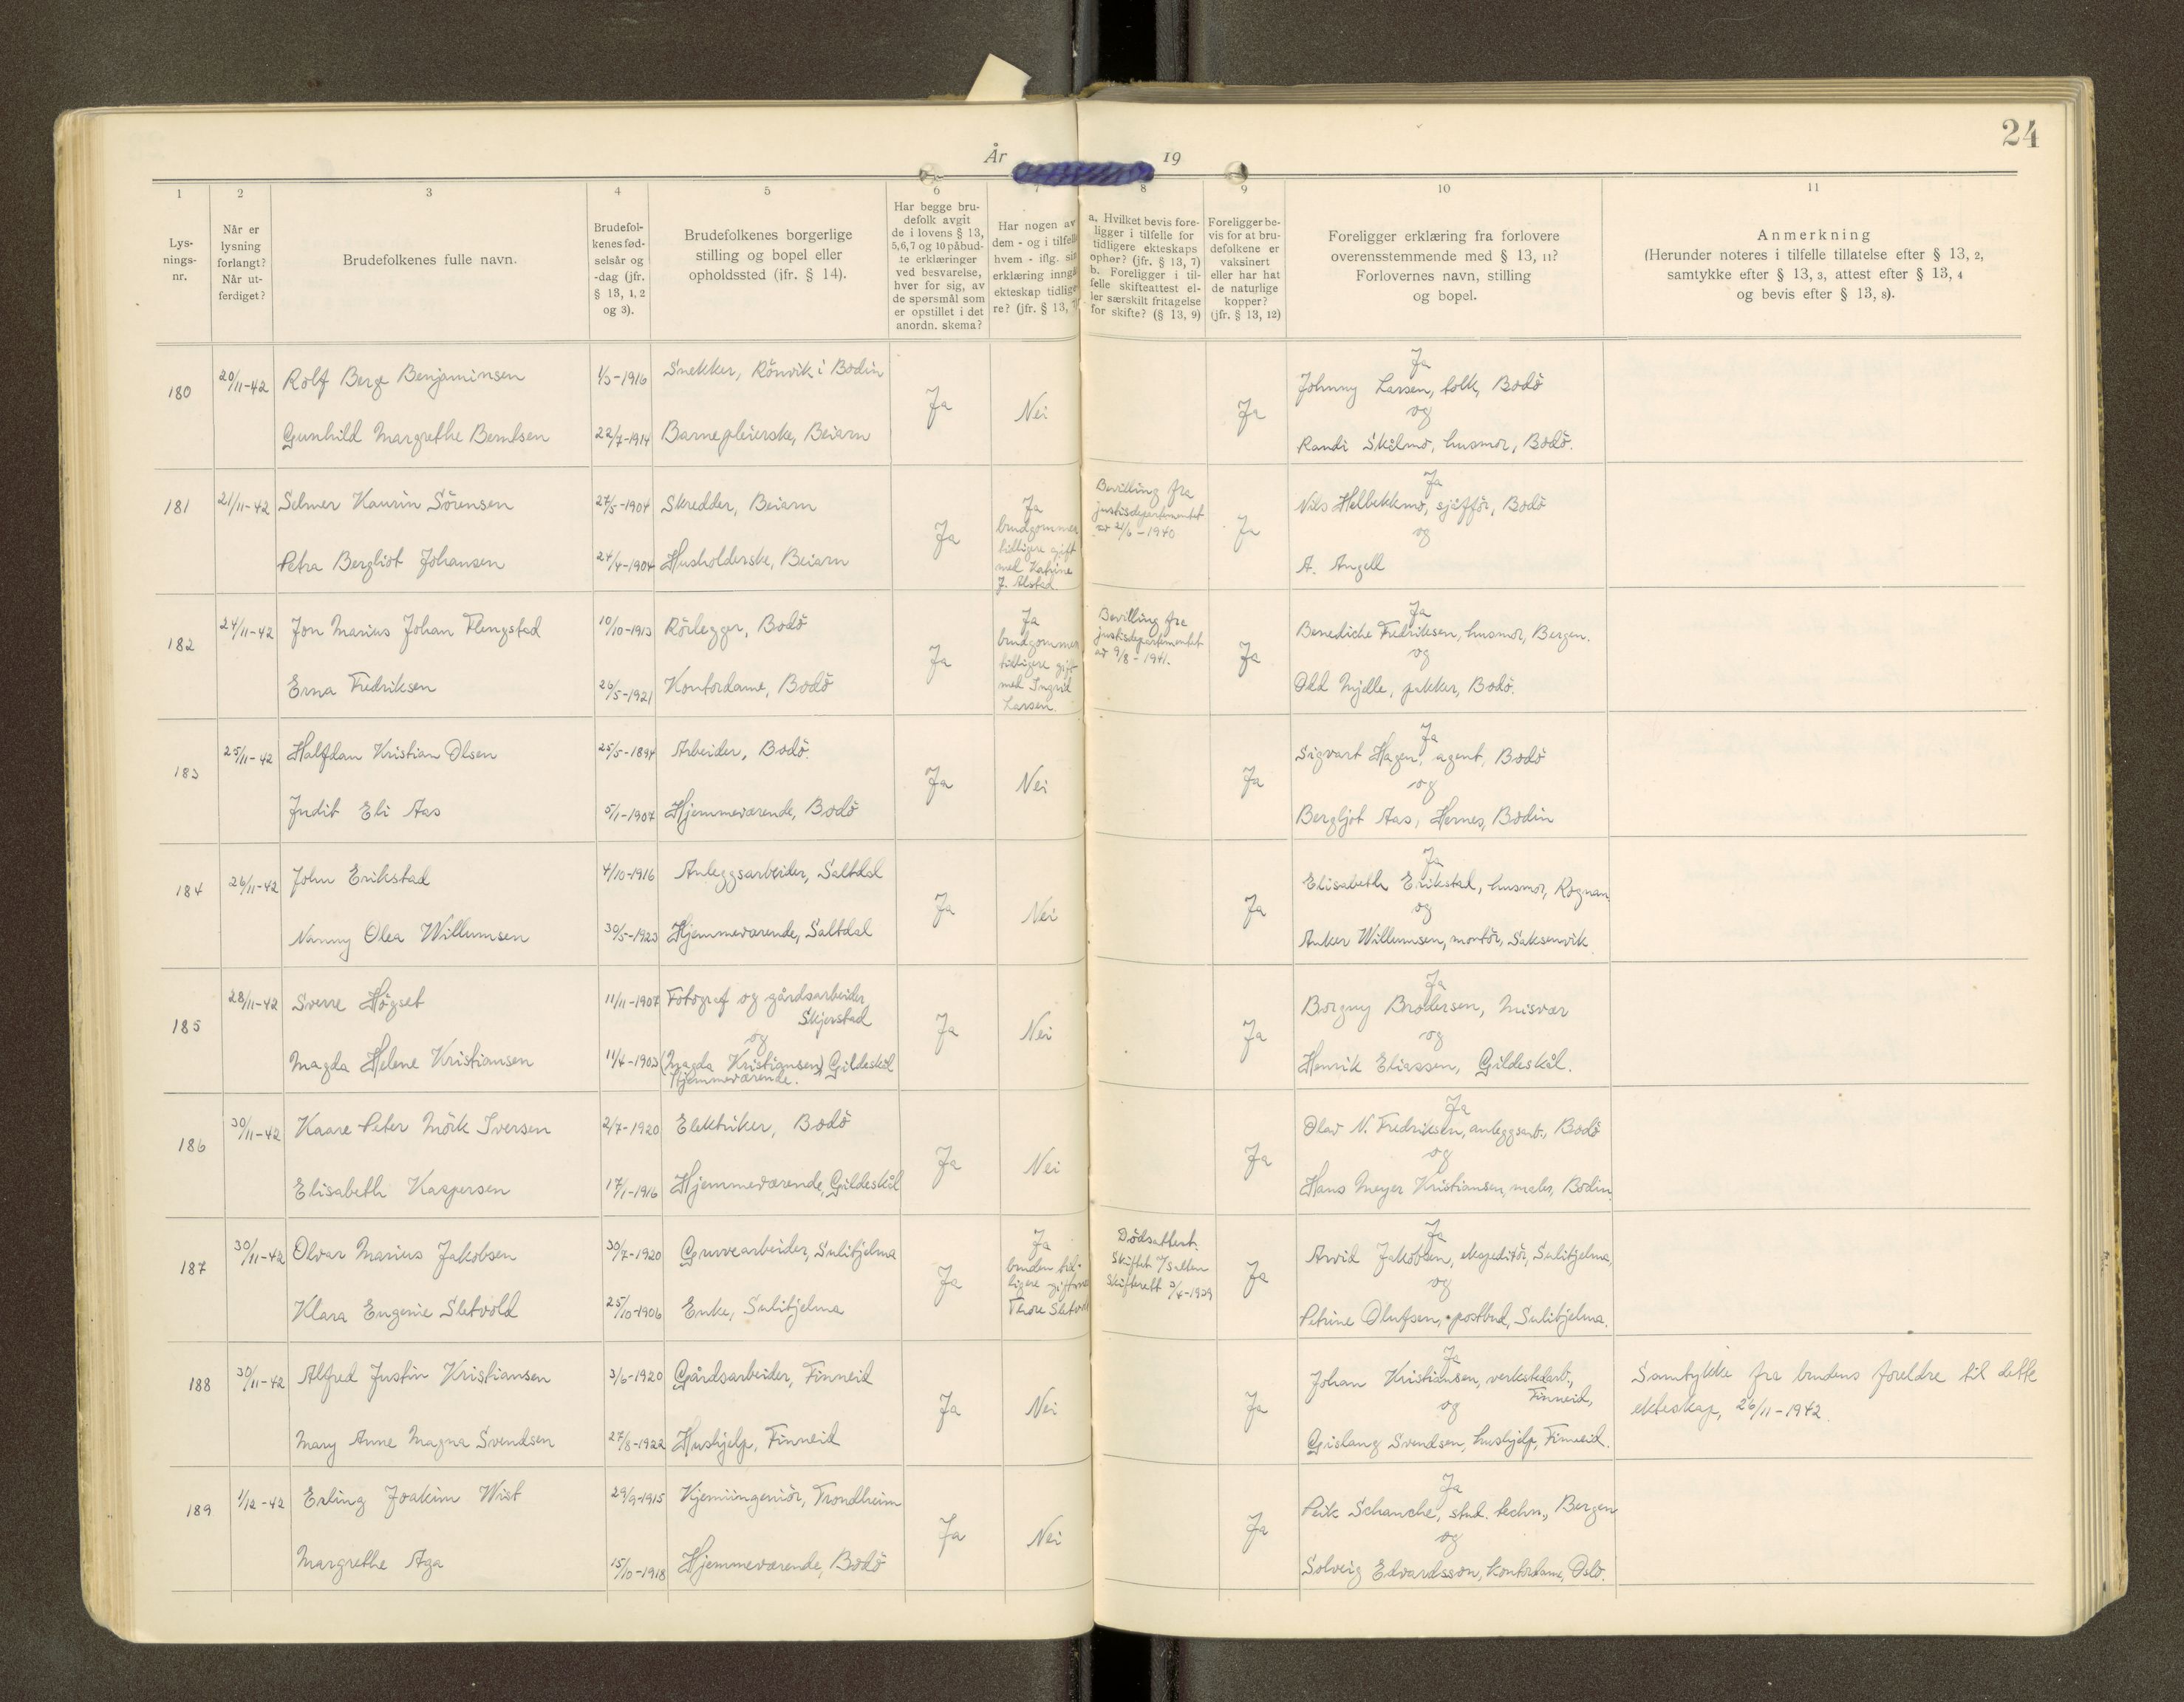 24
År 19
1
2
3
4
5
6
7
8
9
10
11
Lys-
nings-
nr.
Når er
lysning
forlangt?
Når ut-
ferdiget?
Brudefolkenes fulle navn.
Brudefol-
kenes fød-
selsår og
-dag (jfr.
§ 13, 1, 2
og 3).
Brudefolkenes borgerlige
stilling og bopel eller
opholdssted (jfr. § 14).
Har begge bru-
defolk avgit
de i lovens § 13,
5, 6, 7 og 10 påbud-
te erklæringer
ved besvarelse,
hver for sig, av
de spørsmål som
er opstillet i det
anordn. skema?
Har nogen av
dem - og i tilfelle
hvem - iflg. sin
erklæring inngå
ekteskap tidlige-
re? (jfr. § 13, 7)
a. Hvilket bevis fore-
ligger i tilfelle for
tidligere ekteskaps
ophør? (jfr. § 13, 7)
b. Foreligger i til-
felle skifteattest el-
ler særskilt fritagelse
for skifte? (§ 13, 9)
Foreligger be-
vis for at bru-
defolkene er
vaksinert
eller har hat
de naturlige
kopper?
(jfr. § 13, 12)
Foreligger erklæring fra forlovere
overensstemmende med § 13, 11?
Forlovernes navn, stilling
og bopel.
Anmerkning
(Herunder noteres i tilfelle tillatelse efter § 13, 2,
samtykke efter § 13, 3, attest efter § 13, 4
og bevis efter § 13, 8).
180
20/11-42
Rolf Berge Benjaminsen
1/3-1916
Snekker, Rönvik i Bodin
Gunhild Margrethe Berntsen
22/7-1914
Barnepleierske, Beiarn
Ja
Nei
Ja
Ja
Johnny Larsen, tolk, Bodö
og
Randi Skålmo, husmor, Bodö.
181
21/11-42
Selmer Kaurin Sörensen
27/5-1904
Skredder, Beiarn
Petra Bergliot Johansen
24/4-1904
Husholderske, Beiarn
Ja
Ja
brudgommen
tidligere gift
med Katrine
J. Alstad.
Bevilling fra
justisdepartementet
av 21/6-1940
Ja
Ja
Nils Helbekkmo, sjåfför, Bodö
og
A. Angell
182
24/11-42
Jon Marius Johan Flengstad
10/10-1913
Rörlegger, Bodö
Erna Fredriksen
26/5-1921
Kontordame, Bodö
Ja
Ja
brudgommen
tidligere gift
med Ingrid
Larsen.
Bevilling fra
justisdepartementet
av 9/8-1941.
Ja
Ja
Benedicte Fredriksen, husmor, Bergen.
og
Odd Mjelle, pakker, Bodö.
183
25/11-42
Halfdan Kristian Olsen
25/5-1894
Arbeider, Bodö.
Judit Eli Aas
5/1-1907
Hjemmeværende, Bodö
Ja
Nei
Ja
Ja
Sigvart Hagen, agent, Bodö
og
Bergljot Aas, Hernes, Bodin
184
26/11-42
John Erikstad
4/10-1916
Anleggsarbeider, Saltdal
Nanny Olea Willumsen
30/5-1923
Hjemmeværende, Saltdal
Ja
Nei
Ja
Ja
Elisabeth Erikstad, husmor, Rognan
og
Anker Willumsen, montör, Saksenvik
185
28/11-42
Sverre Högset
11/11-1907
Fotograf og gårdsarbeider
Skjerstad
og
Magda Helene Kristiansen
11/4-1903
(Magda Kristiansen) Gildeskål
Hjemmeværende.
Ja
Nei
Ja
Ja
Borgny Brodersen, Misvær
og
Henrik Eliassen, Gildeskål.
186
30/11-42
Kaare Peter Mörk Iversen
2/7-1920
Elektriker, Bodö
Elisabeth Kaspersen
17/1-1916
Hjemmeværende, Gildeskål
Ja
Nei
Ja
Ja
Olav N. Fredriksen, anleggsarb., Bodö
og
Hans Meyer Kristiansen, maler, Bodin
187
30/11-42
Olvar Marius Jakobsen
30/7-1920
Gruvearbeider, Sulitjelma
Klara Eugenie Sletvold
25/10-1906
Enke, Sulitjelma
Ja
Ja
bruden tid-
ligere gift med
Thore Sletvold
Dödsattest.
Skiftet v/Salten
Skifterett 3/4-1929
Ja
Ja
Arvid Jakobsen, ekspeditör, Sulitjelma,
og
Petrine Olufsen, postbud, Sulitjelma.
188
30/11-42
Alfred Justin Kristiansen
3/6-1920
Gårdsarbeider, Finneid
Mary Anne Magna Svendsen
27/8-1922
Hushjelp, Finneid
Ja
Nei
Ja
Ja
Johan Kristiansen, verkstedarb.,
Finneid,
og
Gislaug Svendsen, hushjelp, Finneid.
Samtykke fra brudens foreldre til dette
ekteskap, 26/11-1942.
189
1/12-42
Erling Joakim Wist
29/9-1915
Kjemiingeniör, Trondheim
Margrethe Aga
15/10-1918
Hjemmeværende, Bodö
Ja
Nei
Ja
Ja
Peik Schanche, stud. techn., Bergen
og
Solveig Edvardsson, Kontordame, Oslo.